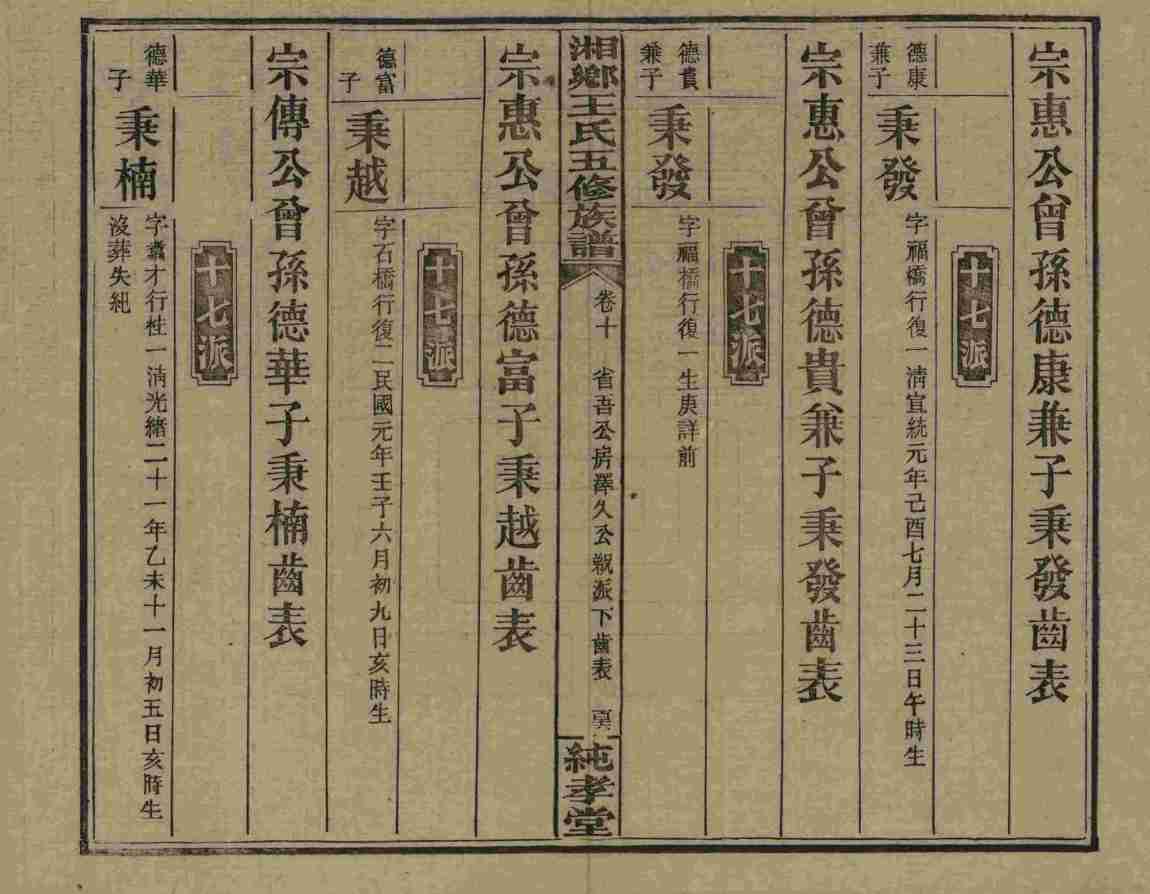 宗惠公曾孫德康兼子秉發齒表
十七派
德康
兼子
秉發
字福橋行復一清宣統元年己酉七月二十三日午時生
宗惠公曾孫德貴兼子秉發齒表
十七派
德貴
兼子
秉發
字福橋行復一生庚詳前
湘鄉王氏五修族譜
卷十
省吾公房澤久公親派下齒表
純孝堂
宗惠公曾孫德富子秉越齒表
十七派
德富
子
秉越
字石橋行復二民國元年壬子六月初九日亥時生
宗傳公曾孫德華子秉楠齒表
十七派
德華
子
秉楠
字翥才行性一清光緒二十一年乙未十一月初五日亥時生
沒葬失紀